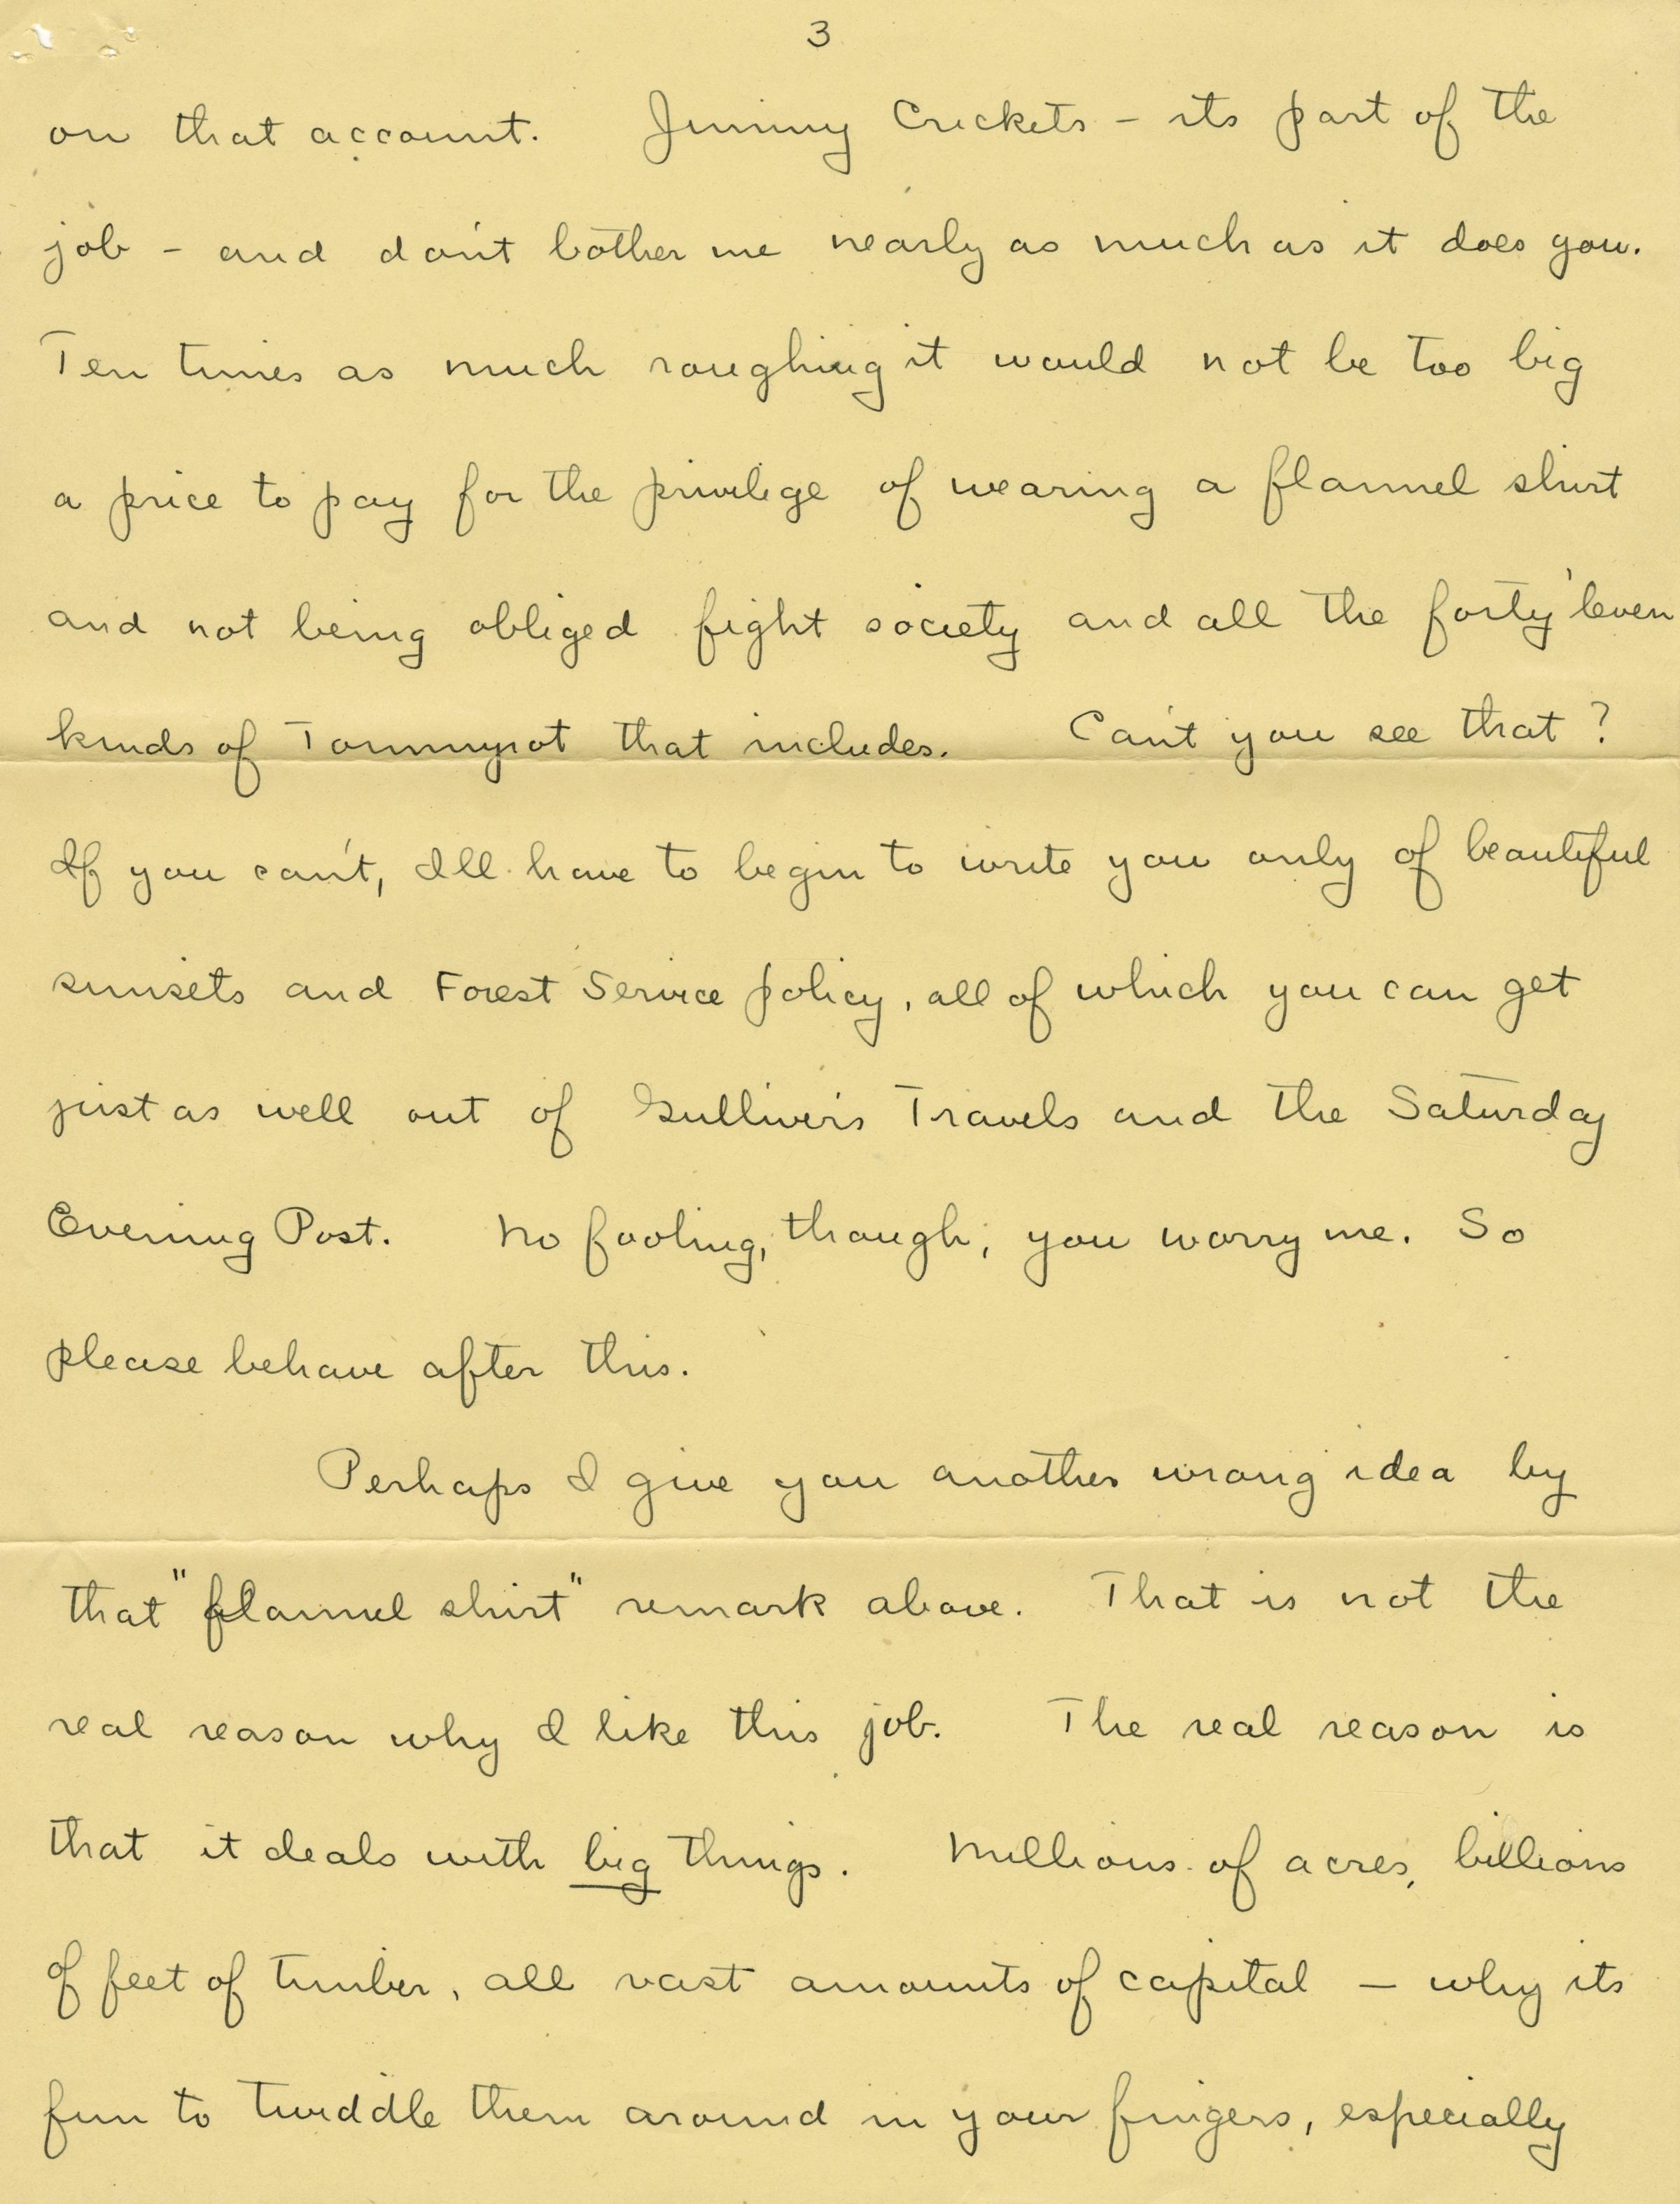 3
on that account. Jimmy Crickets - its part of the
job - and don't bother me nearly as much as it does you.
Ten times as much roughing it would not be too big
a price to pay for the privilege of wearing a flannel shirt
and not being obliged fight society and all the forty 'leven
kinds of Tommyrot that includes. Can't you see that?
If you can't, Ill have to begin to write you only of beautiful
sunsets and Forest Service policy, all of which you can get
just as well out of Gulliver's Travels and the Saturday
Evening Post. No fooling, though, you worry me. So
please behave after this.
Perhaps I give you another wrong idea by
that "flannel shirt" remark above. That is not the
real reason why I like this job. The real reason is
that it deals with big things. Millions of acres, billions
of feet of timber, all vast amounts of capital - why its
fun to twiddle them around in your fingers, especially